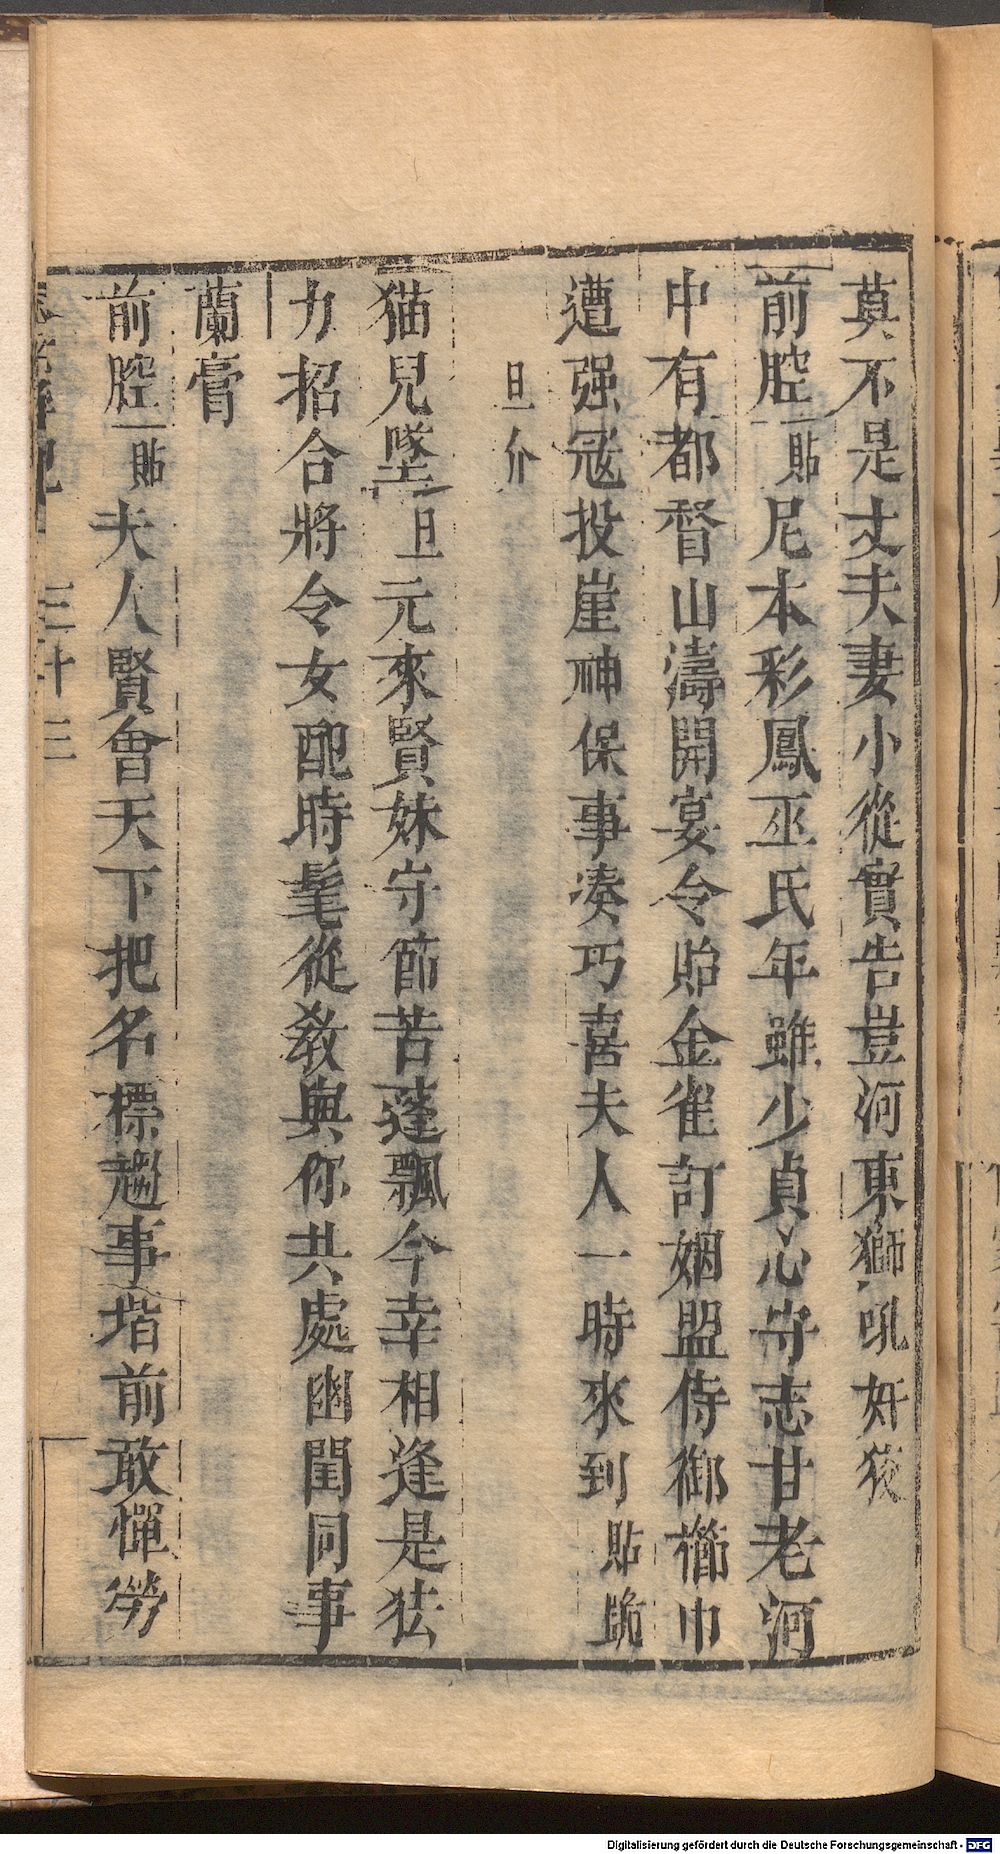 莫不是丈夫妻小從實告豈河東獅吼奸狡
前腔 貼 尼本彩鳳巫氏年雖少貞心守志甘老河
中有都督山濤開宴令貽金雀訂姻盟侍御櫛巾
遭强冦投崖神保事凑巧喜夫人一時來到 貼跪
旦介
猫兒墜 旦 元來賢妹守節苦蓬飄今幸相逢是𢫎
力招合將令女配時髦從敎與你共處幽閨同事
蘭膏
前腔 貼 夫人賢會天下把名標趨事堦前敢憚勞
三十三
Digitalisierung gefördert durch die Deutsche Forschungsgemeinschaft - DFG